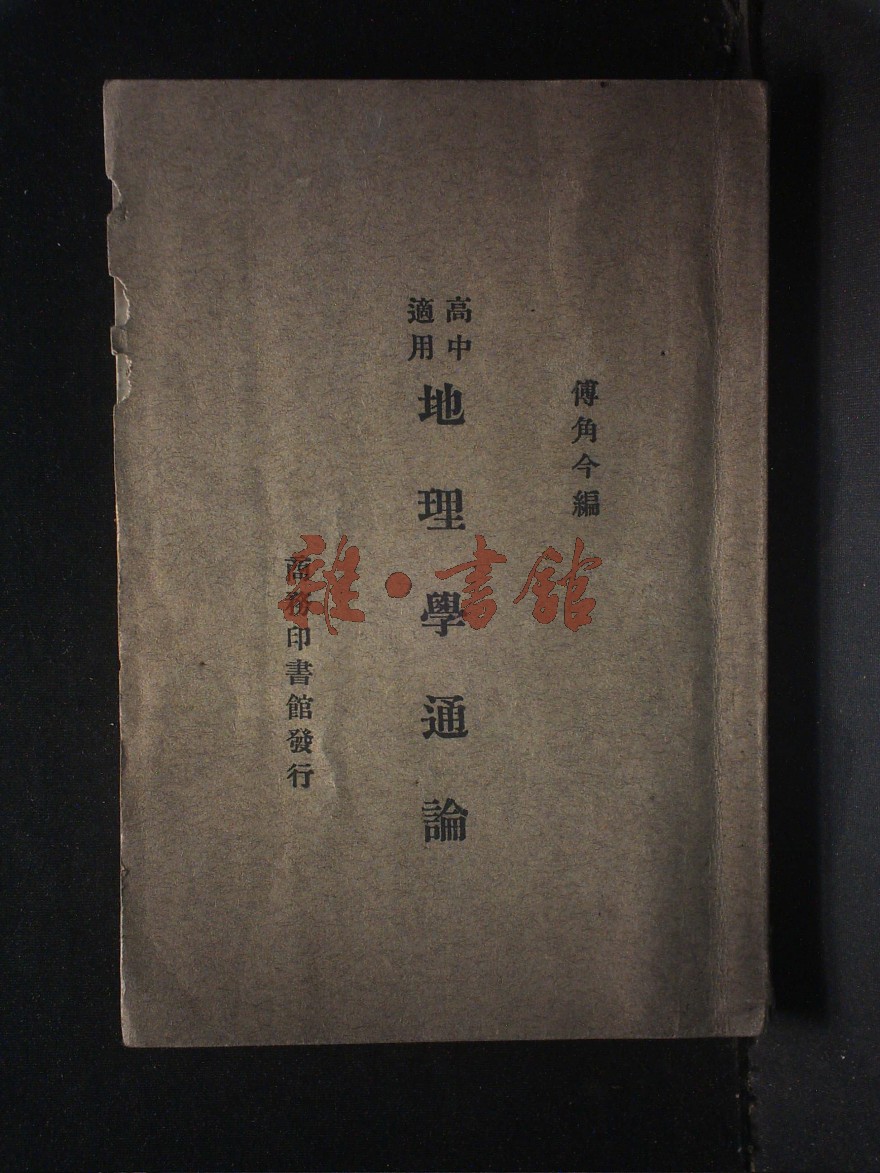 傅角今編
高中
適用
地理學通論
商務印書館發行
雜·書館